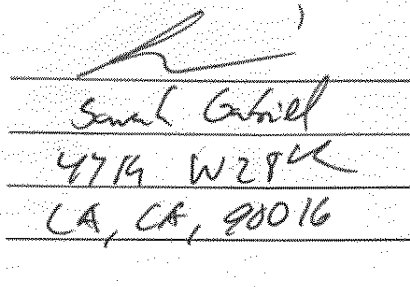 Sarah Gabriel
4719 W 28th
LA, CA, 90016